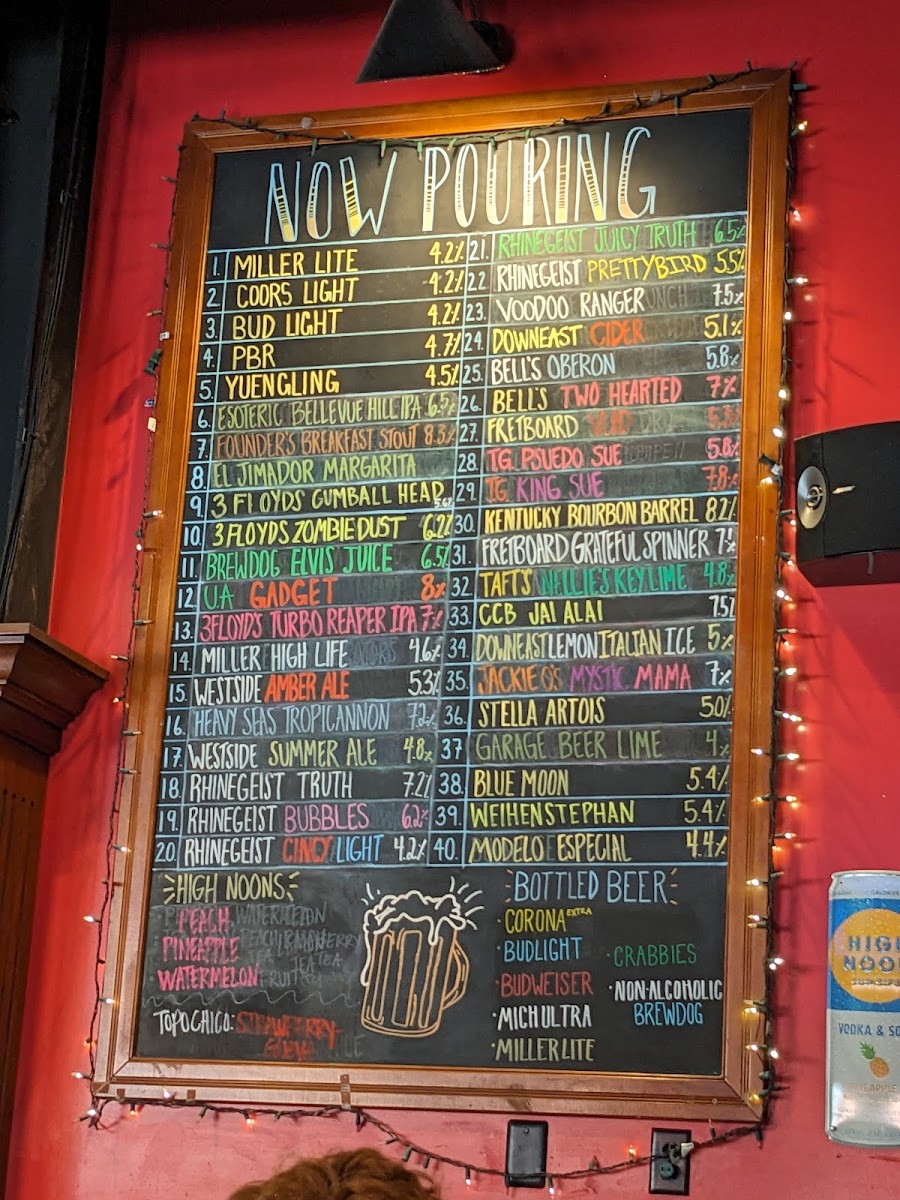 NOW POURING
1. MILLER LITE 4.2%
2. COORS LIGHT 4.2%
3. BUD LIGHT 4.2%
4. PBR 4.7%
5. YUENGLING 4.5%
6. ESOTERIC BELLEVUE HILL IPA 6.5%
7. FOUNDER'S BREAKFAST STOUT 8.3%
8. EL JIMADOR MARGARITA
9. 3 FLOYDS GUMBALL HEAD
10. 3 FLOYDS ZOMBIE DUST 6.2%
11. BREWDOG ELVIS JUICE 6.5%
12. U.A GADGET 8%
13. 3FLOYD'S TURBO REAPER IPA 7%
14. MILLER HIGH LIFE 4.6%
15. WESTSIDE AMBER ALE 5.3%
16. HEAVY SEAS TROPICANNON 7.2%
17. WESTSIDE SUMMER ALE 4.8%
18. RHINEGEIST TRUTH 7.2%
19. RHINEGEIST BUBBLES 6.2%
20. RHINEGEIST CINCY LIGHT 4.2%
21. RHINEGEIST JUICY TRUTH 6.5%
22. RHINEGEIST PRETTYBIRD 5.5%
23. VOODOO RANGER 7.5%
24. DOWNEAST CIDER 5.1%
25. BELL'S OBERON 5.8%
26. BELL'S TWO HEARTED 7%
27. FRETBOARD
28. T.G. PSUEDO SUE 5.8%
29. T.G. KING SUE 7.8%
30. KENTUCKY BOURBON BARREL 8.2%
31. FRETBOARD GRATEFUL SPINNER 7%
32. TAFT'S NELLIE'S KEY LIME 4.8%
33. CCB JAI ALAI 7.5%
34. DOWNEAST LEMON ITALIAN ICE 5%
35. JACKIE O'S MYSTIC MAMA 7%
36. STELLA ARTOIS 5.0%
37 GARAGE BEER LIME 4%
38. BLUE MOON 5.4%
39. WEIHENSTEPHAN 5.4%
40. MODELO ESPECIAL 4.4%
HIGH NOONS
PEACH
PINEAPPLE
WATERMELON
TOPO CHICO: STRAWBERRY
BOTTLED BEER
· CORONA EXTRA
· BUDLIGHT
· BUDWEISER
· MICH ULTRA
· MILLER LITE
· CRABBIES
· NON-ALCOHOLIC
BREWDOG
HIGH
NOON
VODKA & SO
PINEAPPLE